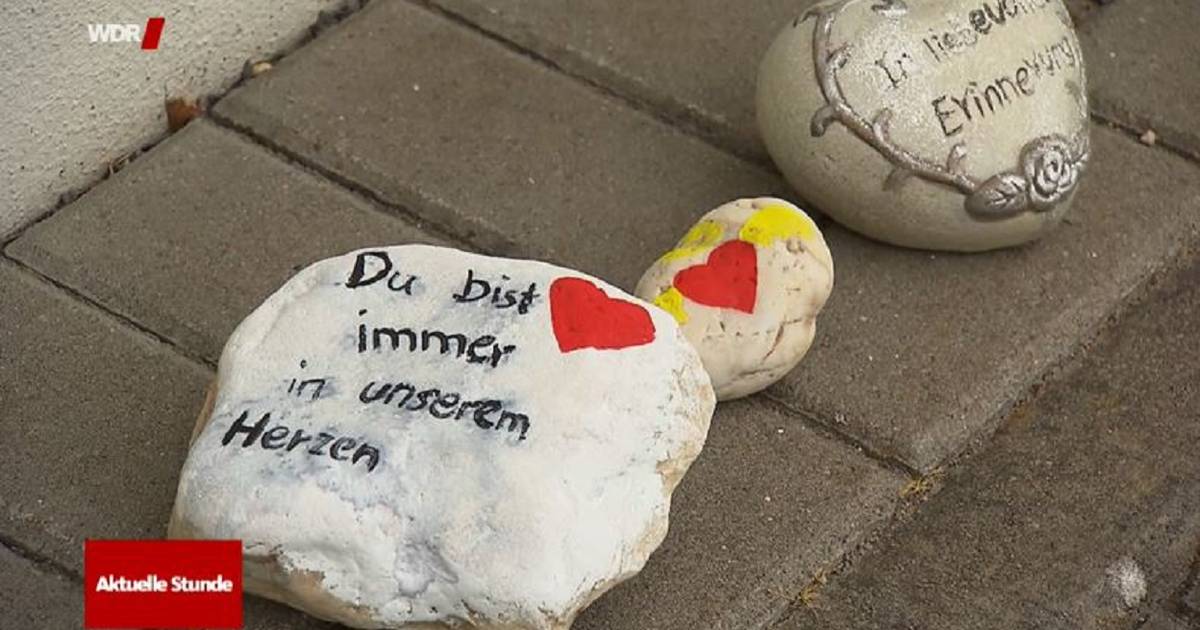 WDR
In liebevoller
Erinnerung
Du bist
immer
in unserem
Herzen
Aktuelle Stunde